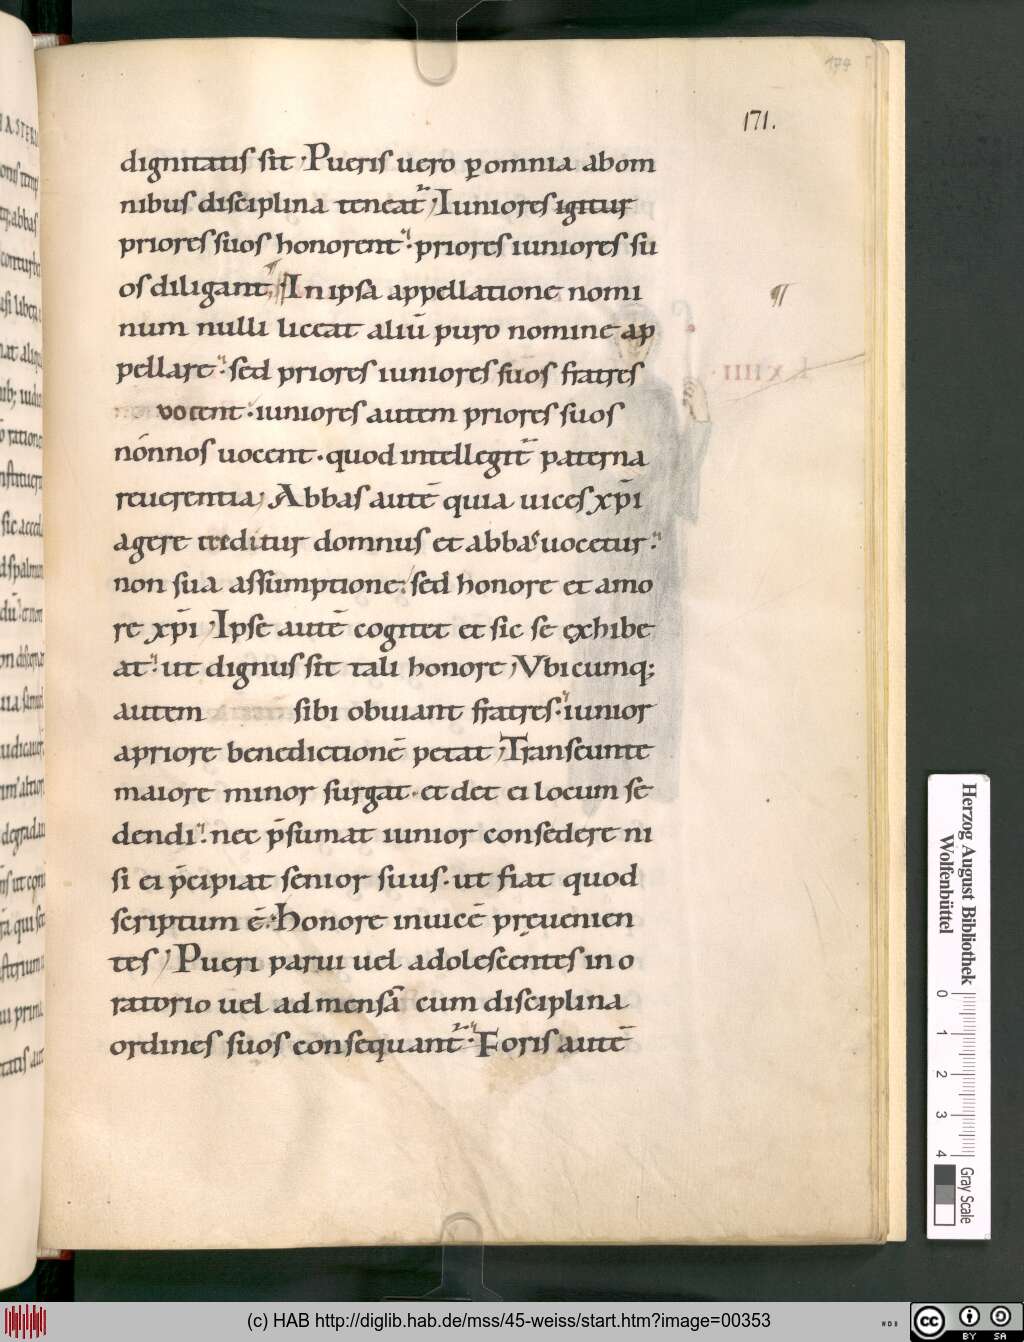 171.
dignitatis sit · Pueris uero ꝑ omnia ab om
nibus disciplina teneat᷑ ; Iuniores igitur
priores suos honorent · priores iuniores su
os diligant ; In ipsa appellatione nomi
num nulli liceat aliū puro nomine ap
pellare · sed priores iuniores suos fratres
uocent · iuniores autem priores suos
nonnos uocent · quod intellegit᷑ paterna
reuerentia ; Abbas autē quia uices xp̄i
agere creditur domnus et abbas uocetur ·
non sua assumptione · sed honore et amo
re xp̄i ; Ipse autē cogitet et sic se exhibe
at · ut dignus sit tali honore ; Vbicumq;
autem sibi obuiant fratres · iunior
a priore benedictionē petat ; Transeunte
maiore minor surgat · et det ei locum se
dendi · nec p̄sumat iunior consedere ni
si ei p̄cipiat senior suus · ut fiat quod
scriptum ē · Honore inuicē preuenien
tes ; Pueri parui uel adolescentes in o
ratorio uel ad mensā cum disciplina
ordines suos consequant᷑ · Foris autē
Herzog August Bibliothek
Wolfenbüttel
0 1 2 3 4
Gray Scale
(c) HAB http://diglib.hab.de/mss/45-weiss/start.htm?image=00353
cc BY SA